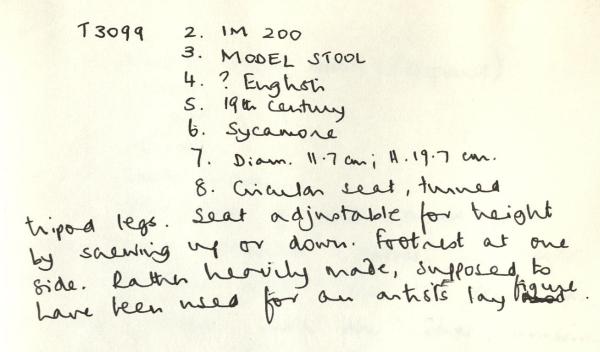 T3099 2. IM 200
3. MODEL STOOL
4. ? English
5. 19th Century
6. Sycamore
7. Diam. 11.7 cm; H. 19.7 cm.
8. Circular seat, turned
tripod legs. Seat adjustable for height
by screwing up or down. Footrest at one
side. Rather heavily made, supposed to
have been used for an artist's lay figure.